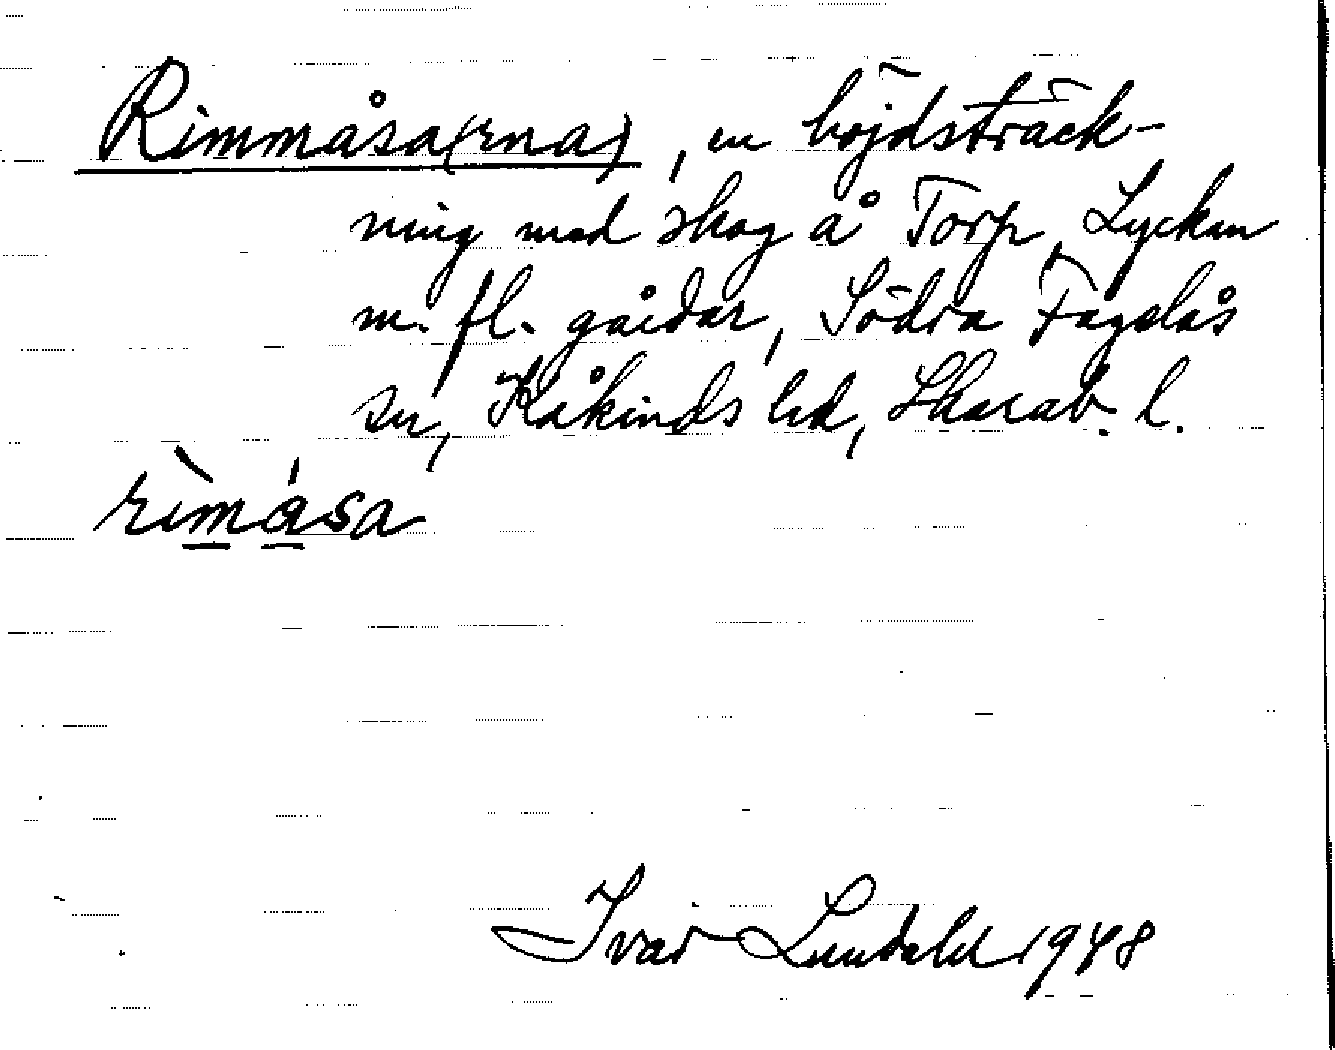 Rimmåsa(rna), en höjdsträck-
ning med skog å Torp, Lyckan
m. fl. gårdar, Södra Fågelås
sn, Kåkinds hd, Skarab. l.
rìmása
Ivar Lundahl 1948